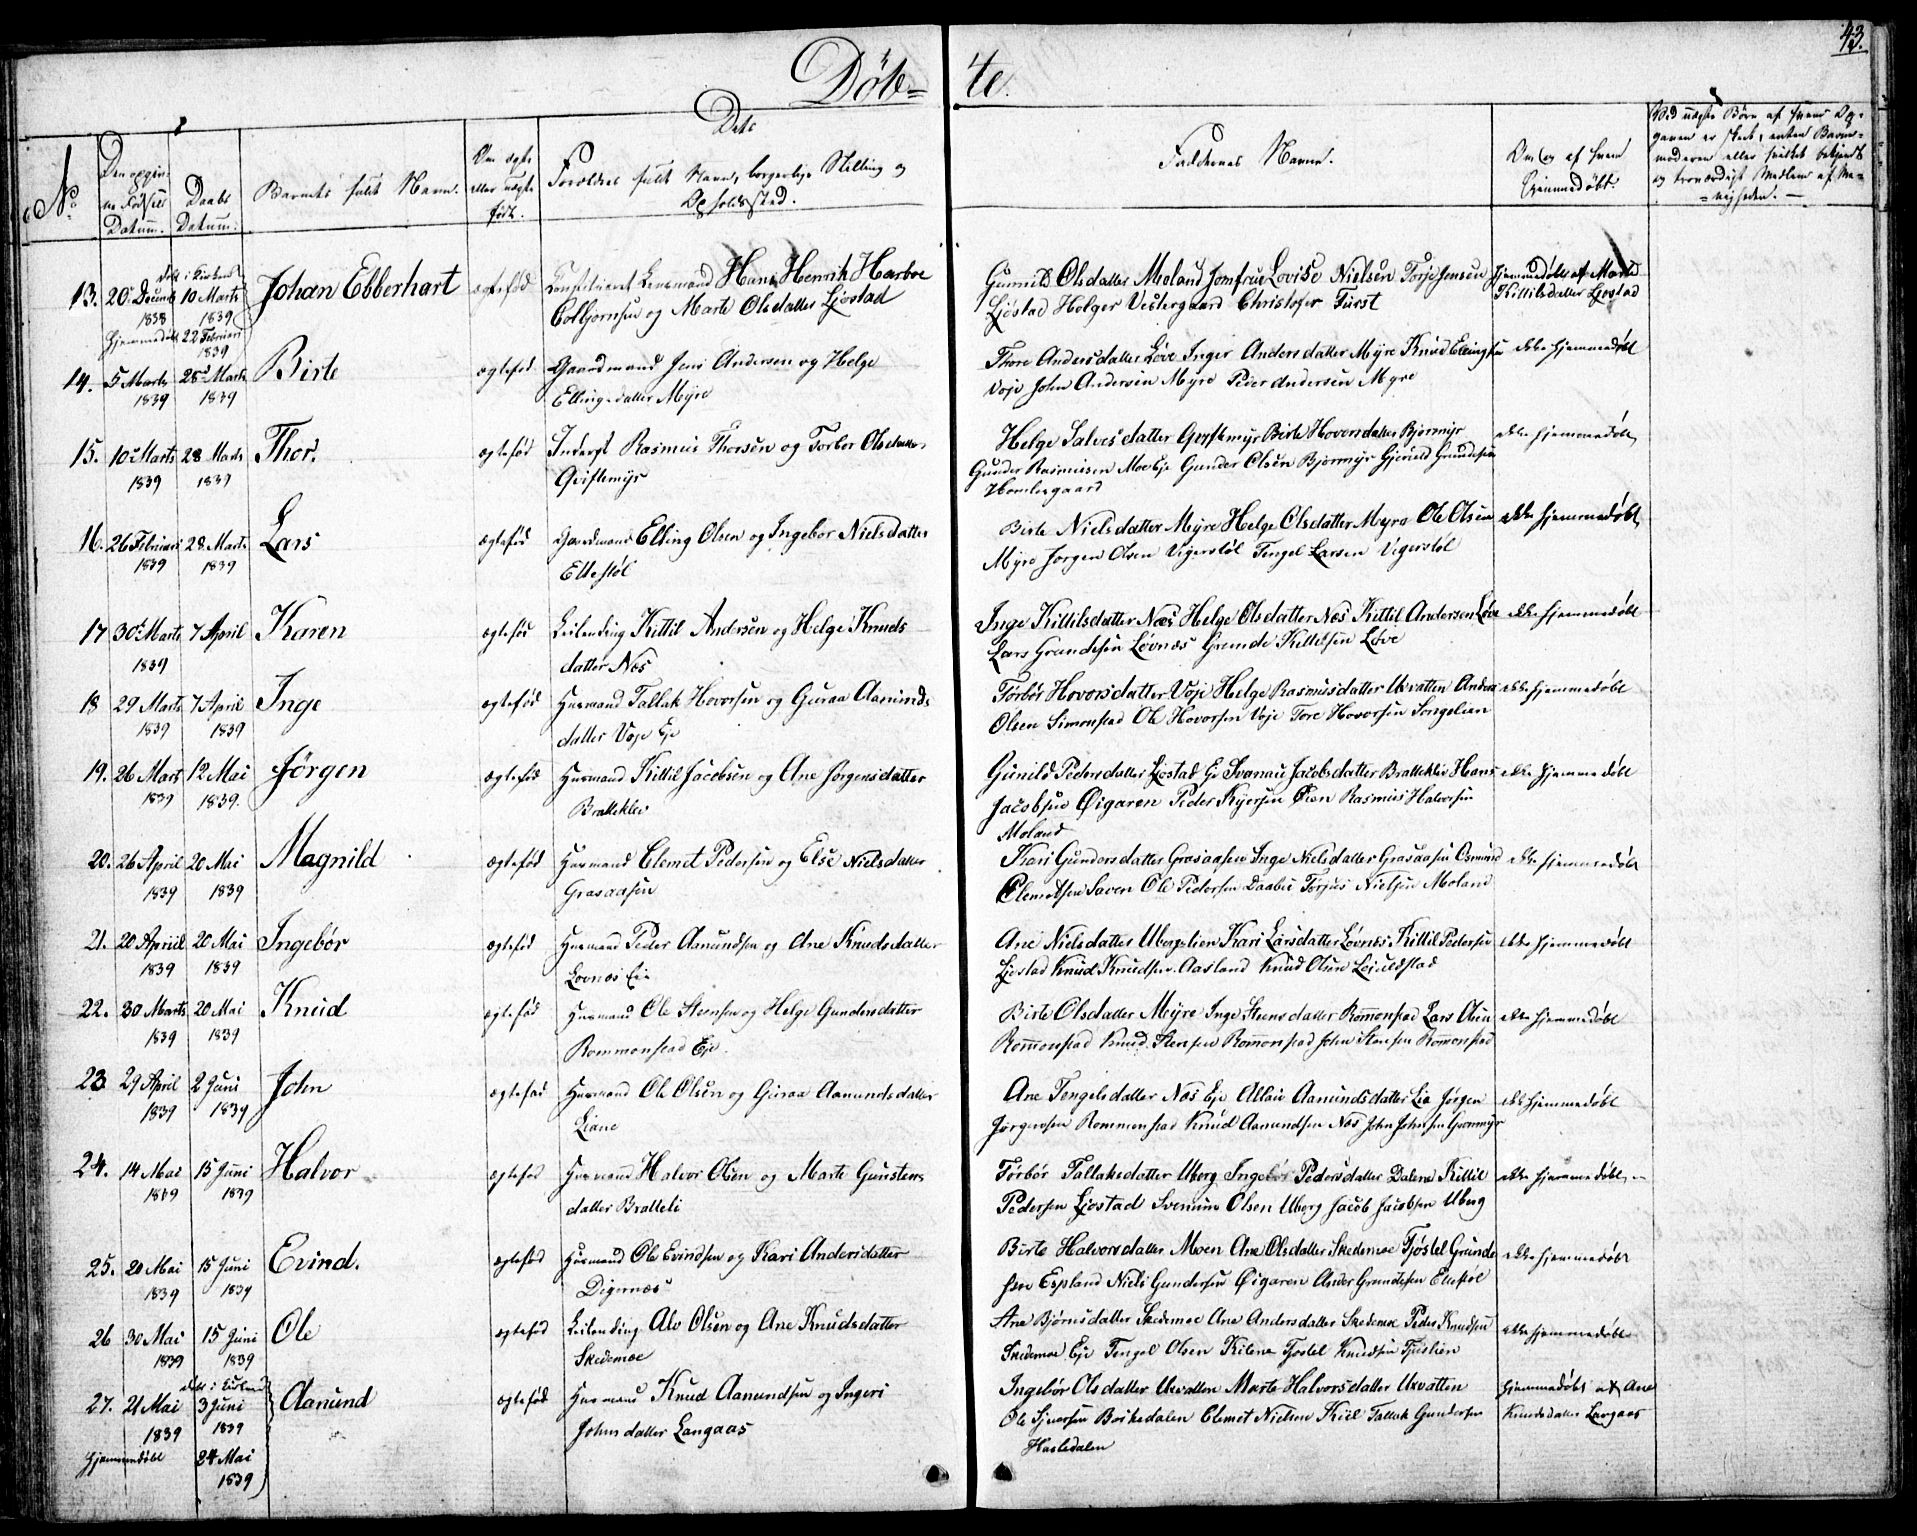 43.
Döb= te.
No.
Den opgivne Fødsels Datum.
Daabs Datum.
Barnets fulde Navn.
Om ægte eller uægte født.
Dets
Forældres fulde Navn, borgerlige Stilling og Opholdssted.
Faddernes Navne.
Om og af hvem hjemmedøbt.
Ved uægte Børn af hvem Op-
moderen eller hvilket bekjendt
og troværdigt Medlem af Me-
=nigheden. —
13. 20 Decmb 1838
døbt i Kirken 10 Marts 1839
Hjemmedøbt 22 Februari 1839
Johan Ebberhart
ægtefød
Constitueret Lensmand Hans Henrik Harboe
Colbjørnsen og Marte Olsdatter Ljøstad
Gunnild Olsdatter Moland Jomfrue Lovise Nielsen Torje Jensen
Ljøstad Holger Vestergaard Christofer Fürst
Hjemmedøbt af Marte
Kittilsdatter Ljøstad
14. 5 Marts 1839
28 Marts 1839
Birte
ægtefød
Gaardmand Jens Andersen og Helge
Ellingsdatter Myre
Thore Andersdatter Løve Inger Andersdatter Myre Knud Ellingsen
Voje John Andersen Myre Peder Andersen Myre
ikke hjemmedøbt
15. 10 Marts 1839
28 Marts 1839
Thor.
ægtefød
Inderst Rasmus Thorsen og Torbor Olsdatter
Qviftemyr
Helge Salvesdatter Birte Hovorsdatter Bjørmyr
Gunder Rasmusen Moe Eje Gunder Olsen Bjørmyr
ikke hjemmedøbt
16. 26 Februari 1839
28 Marts 1839
Lars
ægtefød
Gaardmand Elling Olsen og Ingebor Nielsdatter
Ellestøl
Birte Nielsdatter Myre Helge Olsdatter Myre Ole Olsen
Myre Jørgen Olsen Vegerstøl Tengel Larsen Vigerstøl
ikke hjemmedøbt
17 30 Marts 1839
7 April
Karen
ægtefød
Leilending Kittil Andersen og Helge Knuds
datter Næs
Inge Kittilsdatter Næs Helge Olsdatter Næs Kittil Andersen Løve
Lars Grundesen Løvnæs Grunde Kittilsen Løve
ikke hjemmedøbt
18 29 Marts 1839
7 April 1839
Inge
ægtefød
Husmand Tallak Hovorsen og Guraa Aamunds
datter Voje Eje
Torbør Hovorsdatter Voje Helge Rasmusdatter Uxvatten Anders
Olsen Simonstad Ole Hovorsen Voje Tore Hovorsen Songelien
ikke hjemmedøbt
19. 26 Marts 1839
12 Mai 1839.
Jørgen
ægtefød
Husmand Kittil Jacobsen og Ane Jørgensdatter
Bratteklev
Gunild Pedersdatter Ljøstad Eje Svanau Jacobsdatter Bratteklev Hans
Jacobsen Øigaren Peder Kjersen Øien Rasmus Halvorsen
Moland
ikke hjemmedøbt
20. 26 April 1839
20 Mai 1839
Magnild
ægtefød
Husmand Clemet Pedersen og Else Nielsdatter
Grasaasen
Kari Gundersdatter Grasaasen Inge Nielsdatter Grasaasen Osmund
Clemetsen Saven Ole Pedersen Daabu Torjus Nielsen Moland
ikke hjemmedøbt
21. 20 April 1839
20 Mai 1839
Ingebør
ægtefød
Husmand Peder Aamundsen og Ane Knudsdatter
Lovnæs Eie
Ane Nielsdatter Ubergslien Kari Larsdatter Løvnæs Kittil Pedersen
Ljøstad Knud Knudsen Aasland Knud Olsen Lejuldstad
ikke hjemmedøbt
22. 30 Marts 1839
20 Mai 1839
Knud
ægtefød
Husmand Ole Stensen og Helge Gundersdatter
Rommonstad Eje.
Birte Olsdatter Meyre Inge Stensdatter Rommonstad Lars Olsen
Rommonstad Knud Stensen Rommonstad John Stensen Rommonstad
ikke hjemmedøbt
23 29 April 1839
2 Juni 1839
John
ægtefød
Husmand Ole Olsen og Guraa Aamundsdatter
Liane
Ane Tengelsdatter Næs Eje Aamundsdatter Lia Jørgen
Jørgensen Rommonstad Knud Aamundsen Næs John Johnsen
ikke hjemmedøbt
24. 14 Mai 1839
15 Juni 1839
Halvor
ægtefød
Husmand Halvor Olsen og Marte Gunstens
datter Bratteli
Torbør Tallaksdatter Uberg Ingebør Pedersdatter Dalene Kittil
Pedersen Ljøstad Svenum Olsen Uberg Jacob Jacobsen Uberg
ikke hjemmedøbt
25. 20 Mai 1839
15 Juni 1839
Evind.
ægtefød
Husmand Ole Evindsen og Kari Andersdatter
Digernæs
Birte Halvorsdatter Moen Ane Olsdatter Skedemoe Tjøstel Grunde
sen Espland Niels Gundersen Øigaren Ander Grundesen Ellestøl
ikke hjemmedøbt
26 30 Mai 1839
15 Juni 1839
Ole
ægtefød
Leilending Alv Olsen og Ane Knudsdatter
Skedemoe
Ane Bjørnsdatter Skedemoe Ane Andersdatter Skedemoe Peder Knudsen
Skedemoe Eje Tengel Olsen Kilene Tjostel Knudsen
ikke hjemmedøbt
27. 21 Mai 1839
døbt i Kirken 3 Juni 1839
Hjemmedøbt 24 Mai 1839
Aanund
ægtefød
Husmand Knud Aanundsen og Ingeri
Johnsdatter Langaas
Ingebør Olsdatter Uxvatten Marte Halvorsdatter Uxvatten
Ole Sjversen Borkedalen Clemet Nielsen Kiil Tallak Gundersen
Hasledalen
Hjemmedøbt af Ane
Knudsdatter Langaas